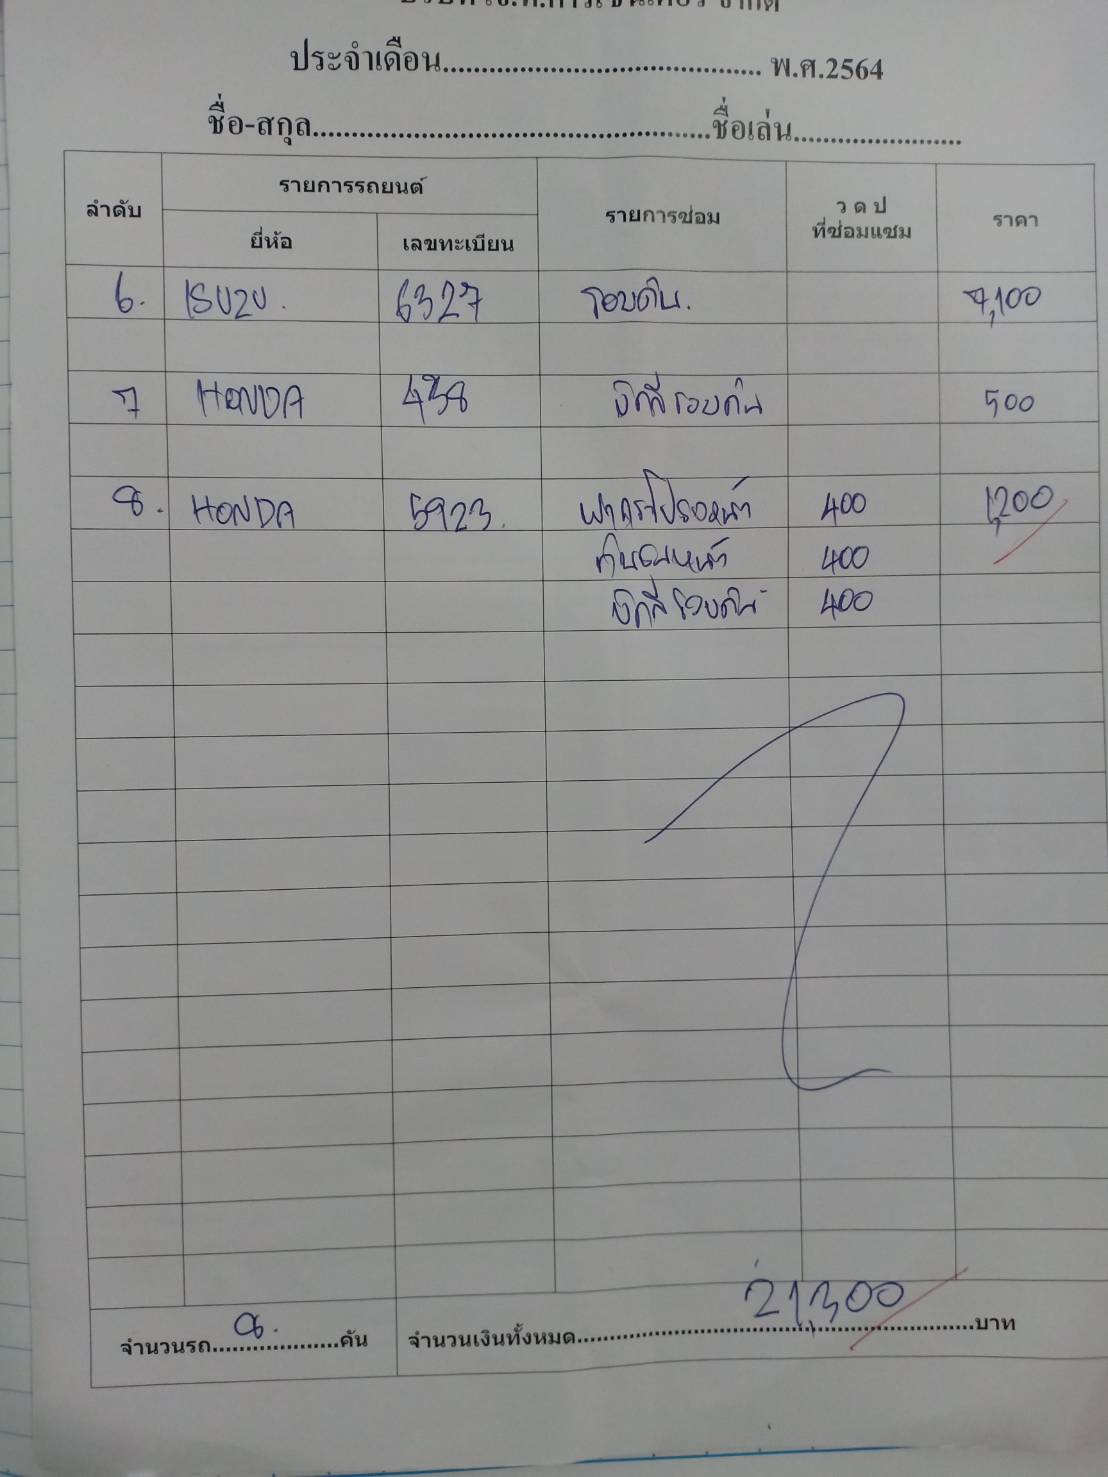 ประจำเดือน........................................ พ.ศ.2564
ชื่อ-สกุล..................................................ชื่อเล่น.....................
ลำดับ รายการรถยนต์ รายการซ่อม ว ด ป ที่ซ่อมแซม ราคา
ยี่ห้อ เลขทะเบียน
6. ISUZU. 6327 รอบคัน. 7,100
7 HONDA 438 ขัดสีรอบคัน 500
8. HONDA 5923. ฝากระโปรงหน้า 400 1,200
กันชนหน้า 400
ขัดสีรอบคัน 400
21,300
จำนวนรถ....8.....คัน จำนวนเงินทั้งหมด..................................................บาท